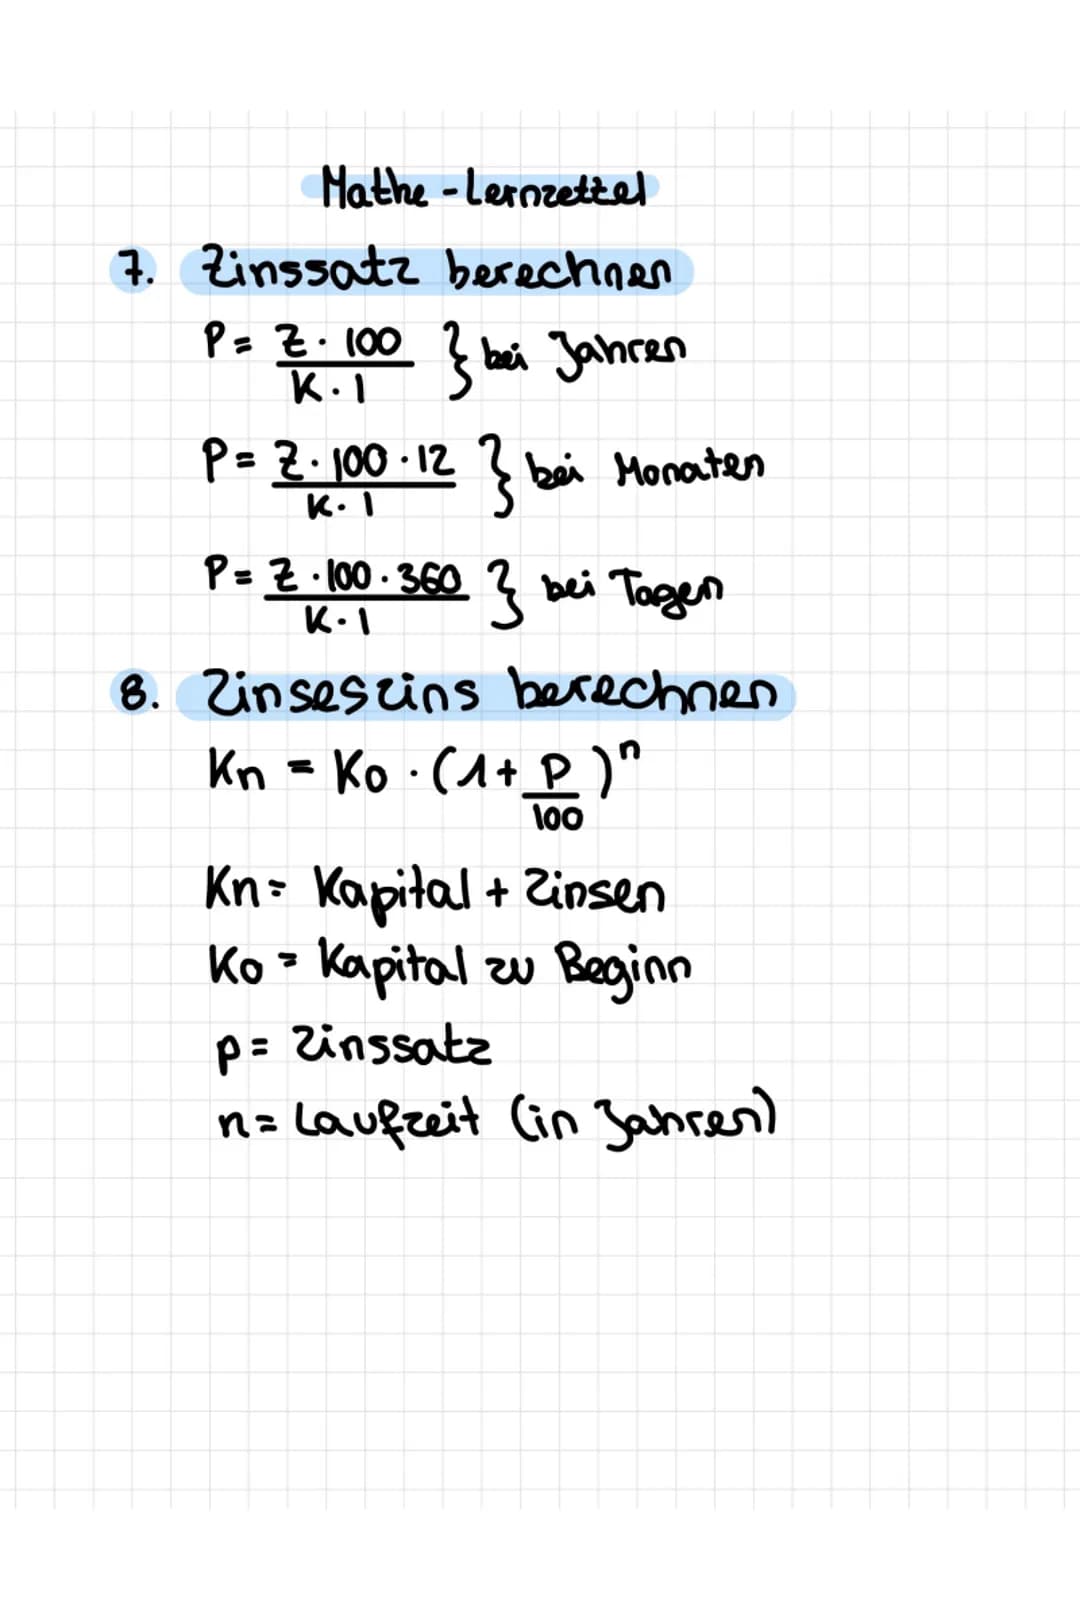 Mathe-Lernzettel
7. Zinssatz berechnen
P = Z · 100 / K · 1 } bei Jahren
P = Z · 100 · 12 / K · 1 } bei Monaten
P = Z · 100 · 360 / K · 1 } bei Tagen
8. Zinseszins berechnen
Kn = Ko · (1 + P / 100)^n
Kn = Kapital + Zinsen
Ko = Kapital zu Beginn
p = Zinssatz
n = Laufzeit (in Jahren)